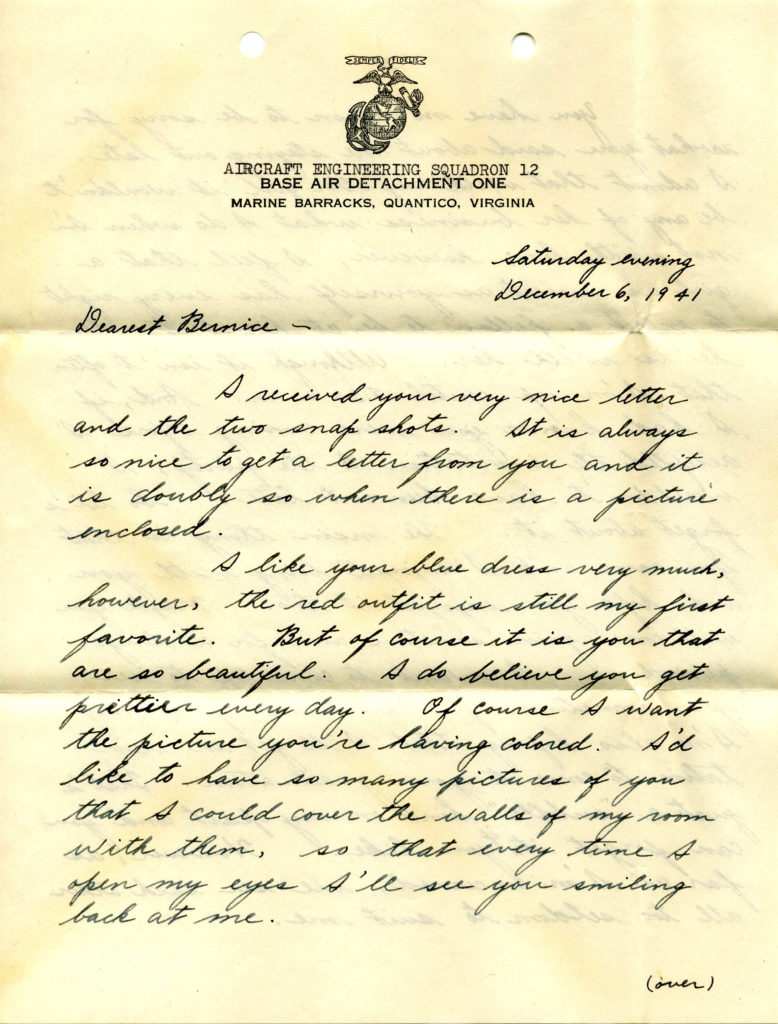 SEMPER FIDELIS
AIRCRAFT ENGINEERING SQUADRON 12
BASE AIR DETACHMENT ONE
MARINE BARRACKS, QUANTICO, VIRGINIA
Saturday evening
December 6, 1941
Dearest Bernice –
I received your very nice letter
and the two snap shots. It is always
so nice to get a letter from you and it
is doubly so when there is a picture
enclosed.
I like your blue dress very much,
however, the red outfit is still my first
favorite. But of course it is you that
are so beautiful. I do believe you get
prettier every day. Of course I want
the picture you're having colored. I'd
like to have so many pictures of you
that I could cover the walls of my room
with them, so that every time I
open my eyes I'll see you smiling
back at me.
(over)